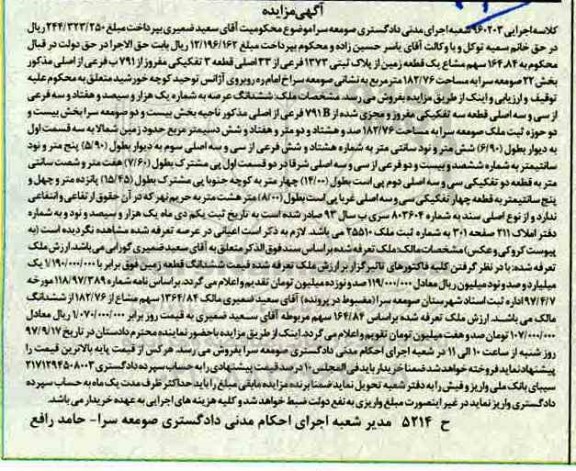 آگهی مزایده
کلاسه اجرایی ۹۶۰۲۰۳ شعبه اجرای مدنی دادگستری صومعه سرا موضوع محکومیت آقای سعید ضمیری بپرداخت مبلغ ۲۴۴/۳۲۳/۲۵۰ ریال
در حق خانم سمیه توکل و با وکالت آقای یاسر حسین زاده و محکوم بپرداخت مبلغ ۱۲/۱۹۶/۱۶۲ ریال بابت حق الاجرا در حق دولت در قبال
محکوم به ۱۶۴.۸۴ سهم مشاع یک قطعه زمین از پلاک ثبتی ۱۳۷۳ فرعی از ۳۳ اصلی قطعه ۳ تفکیکی مفروز از ۷۹۱ ب فرعی از اصلی
بخش ۲۲ صومعه سرا به مساحت ۱۸۲/۷۶ متر مربع به نشانی صومعه سرا خ امام ره روبروی آژانس توحید کوچه خورشید متعلق به محکوم علیه
توقیف و ارزیابی و اینک از طریق مزایده بفروش می رسد. مشخصات ملک: ششدانگ عرصه به شماره یک هزار و سیصد و هفتاد و سه فرعی
از سی و سه اصلی قطعه سه تفکیکی مفروز و مجزی شده از ۷۹۱B فرعی از اصلی مذکور ناحیه بخش بیست و دو صومعه سرا بخش بیست و
دو حوزه ثبت ملک صومعه سرا به مساحت ۱۸۲/۷۶ صد و هشتاد و دو متر و هفتاد و شش دسیمتر مربع حدود زمین شمالا به سه قسمت اول
به دیوار بطول (۶/۹۰) شش متر و نود سانتی متر به شماره هشتاد و شش فرعی از سی و سه اصلی سوم به دیوار بطول (۵/۹۰) پنج متر و نود
سانتیمتر به شماره ششصد و بیست و دو فرعی از سی و سه اصلی شرقا در دو قسمت اول پی مشترک بطول (۷/۶۰) هفت متر و شصت سانتی
متر به قطعه دو تفکیکی سی و سه اصلی دوم پی است بطول (۱۴/۰۰) چهار متر به کوچه جنوبا پی مشترک بطول (۱۵/۴۵) پانزده متر و چهل و
پنج سانتیمتر به قطعه چهار تفکیکی سی و سه اصلی غربا پی است بطول (۸/۰۰) متر هشت متر به حریم نهر که در آن حقوق ارتفاعی و انتفاعی
ندارد و از نوع اصلی سند به شماره ۸۰۳۶۰۴ سری ب سال ۹۳ صادر شده است به تاریخ ثبت یکم دی ماه یک هزار و سیصد و نود و به شماره
دفتر املاک ۲۱۱ صفحه ۳۰۱ به شماره ثبت ملک ۳۵۵۱۰ می باشد. لازم به ذکر است اعیانی در عرصه تعرفه شده مشاهده نگردیده است (به
پیوست کروکی و عکس) مشخصات مالک: ملک تعرفه شده بر اساس سند فوق الذکر متعلق به آقای سعید ضمیری گورابی می باشد. ارزش ملک
تعرفه شده: با در نظر گرفتن کلیه فاکتورهای تاثیرگزار بر ارزش ملک تعرفه شده قیمت ششدانگ قطعه زمین فوق برابر با ۱/۱۹۰/۰۰۰/۰۰۰ یک
میلیارد و صد و نود میلیون ریال معادل ۱۱۹/۰۰۰/۰۰۰ صد و نوزده میلیون تومان تقدیم و اعلام می گردد. بر اساس نامه شماره ۱۱۸/۹۷/۳۸۹ مورخه
۹۷/۴/۷ اداره ثبت اسناد شهرستان صومعه سرا (مضبوط در پرونده) آقای سعید ضمیری مالک ۱۳۶۴/۸۴ سهم مشاع از ۱۸۲/۷۶ از ششدانگ
مالک می باشند. ارزش ملک تعرفه شده بر اساس ۱۶۴/۸۴ سهم مربوطه آقای سعید ضمیری به قیمت روز برابر ۱/۰۷۰/۰۰۰/۰۰۰ ریال معادل
۱۰۷/۰۰۰/۰۰۰ تومان صد و هفت میلیون تومان تقویم و اعلام می گردد. اینک از طریق مزایده با حضور نماینده محترم دادستان در تاریخ ۹۷/۹/۱۷
روز شنبه از ساعت ۱۰ الی ۱۱ در شعبه اجرای احکام مدنی دادگستری صومعه سرا بفروش می رسد. هر کس از قیمت پایه بالاترین قیمت را
پیشنهاد نماید فروخته خواهد شد ضمنا خریدار باید فی المجلس ۱۰ درصد قیمت پیشنهادی را به حساب سپرده دادگستری ۲۱۷۱۲۹۴۵۰۸۰۰۳
سیبای بانک ملی واریز و فیش را به دفتر شعبه تحویل نماید ضمنا برنده مزایده مابقی مبلغ را باید حداکثر ظرف مدت یک ماه به حساب سپرده
دادگستری واریز نماید در غیر اینصورت مبلغ واریزی به نفع دولت ضبط خواهد شد و کلیه هزینه های اجرایی به عهده خریدار می باشد.
ح ۵۲۱۴ مدیر شعبه اجرای احکام مدنی دادگستری صومعه سرا- حامد رافع